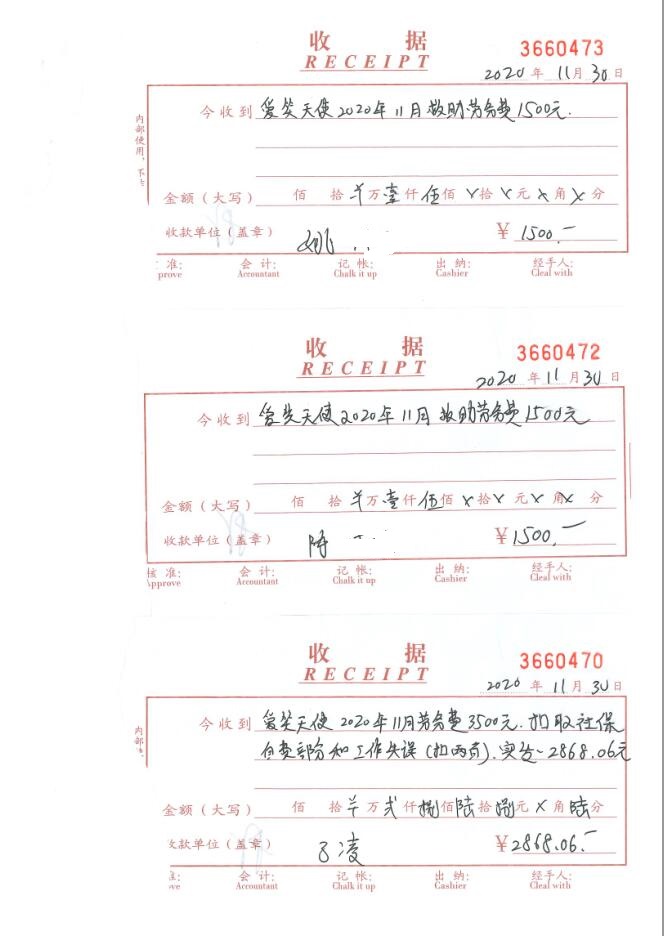 收 据
RECEIPT
3660473
2020 年 11 月 30 日
内部使用,不
今收到 爱笑天使2020年11月救助劳务费1500元.
金额(大写) 佰 拾 万 壹 仟 伍 佰 x 拾 x 元 x 角 x 分
收款单位(盖章) 姚 ¥ 1500.—
准: 会 计: 记 帐: 出 纳: 经手人:
pprove Accountant Chalk it up Cashier Cleal with
收 据
RECEIPT
3660472
2020 年 11 月 30 日
今收到 爱笑天使2020年11月救助劳务费1500元
金额(大写) 佰 拾 万 壹 仟 伍 佰 x 拾 x 元 x 角 x 分
收款单位(盖章) ¥ 1500.—
核 准: 会 计: 记 帐: 出 纳: 经手人:
Approve Accountant Chalk it up Cashier Cleal with
收 据
RECEIPT
3660470
2020 年 11 月 30 日
内部
今收到 爱笑天使2020年11月劳务费3500元.扣取社保
自费部分和工作失误(扣两百).实 2868.06元
金额(大写) 佰 拾 万 贰 仟 捌 佰 陆 拾 捌 元 x 角 陆 分
收款单位(盖章) 凌 ¥ 2868.06.—
准: 会 计: 记 帐: 出 纳: 经手人:
ove Accountant Chalk it up Cashier Cleal with